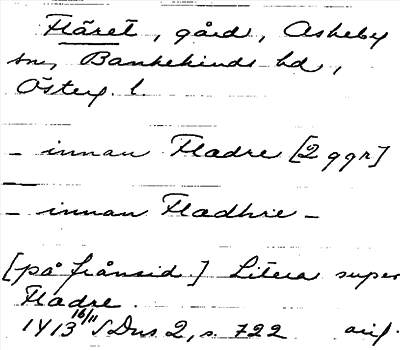 Fläret, gård, Askeby
sn, Bankekinds hd,
Österg. l.
- innan Fladre [2 ggr]
- innan Fladhre -
[på frånsid.] Litera super
Fladre.
1413 16/11 SDns 2, s. 722 avs.